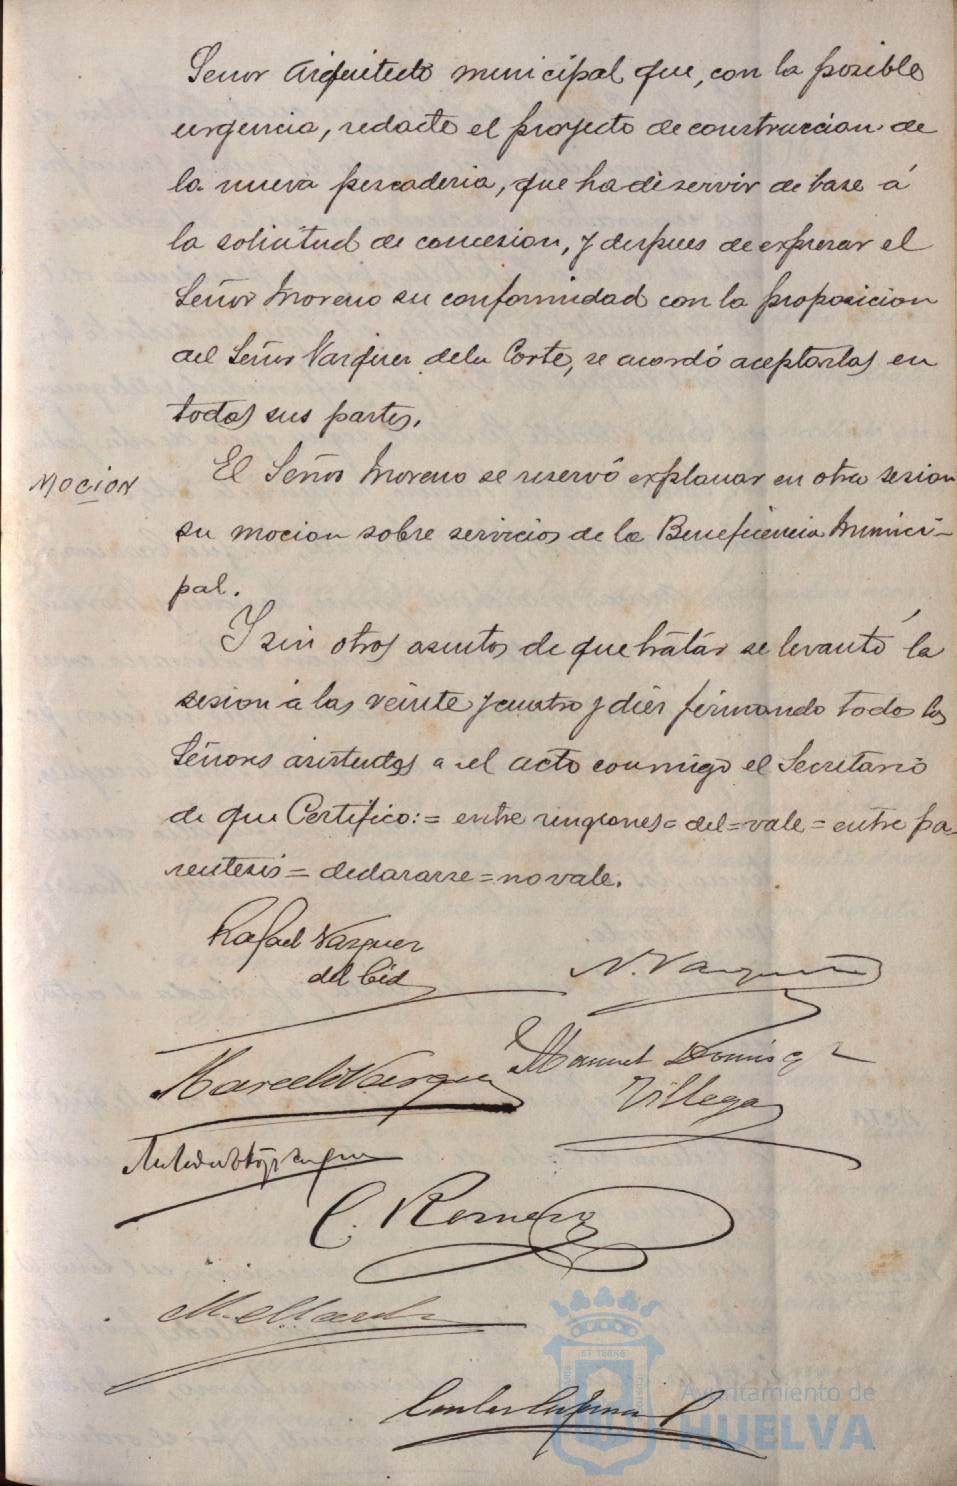 Señor Arquitecto municipal que, con la posible
urgencia, redacte el proyecto de construccion de
la nueva pescaderia, que ha de servir de base á
la solicitud de concesion, y despues de expresar el
Señor Moreno su conformidad con la proposicion
del Señor Vazquez de la Corte, se acordó aceptarlas en
todas sus partes.
MOCION
El Señor Moreno se reservó explanar en otra sesion
su mocion sobre servicios de la Beneficencia Munici-
pal.
Y sin otros asuntos de que tratár se levantó la
sesion á las veinte y cuatro y diez firmando todos los
Señores asistentes a el acto conmigo el Secretario
de que Certifico:= entre renglones= del=vale= entre pa-
rentesis= declararse=no vale.
Rafael Vazquez
del Cid
N. Vazquez
Marcelo Vazquez
Manuel Dominguez
Villegas
C. Romero
ET TERRÆ
Ayuntamiento de
HUELVA